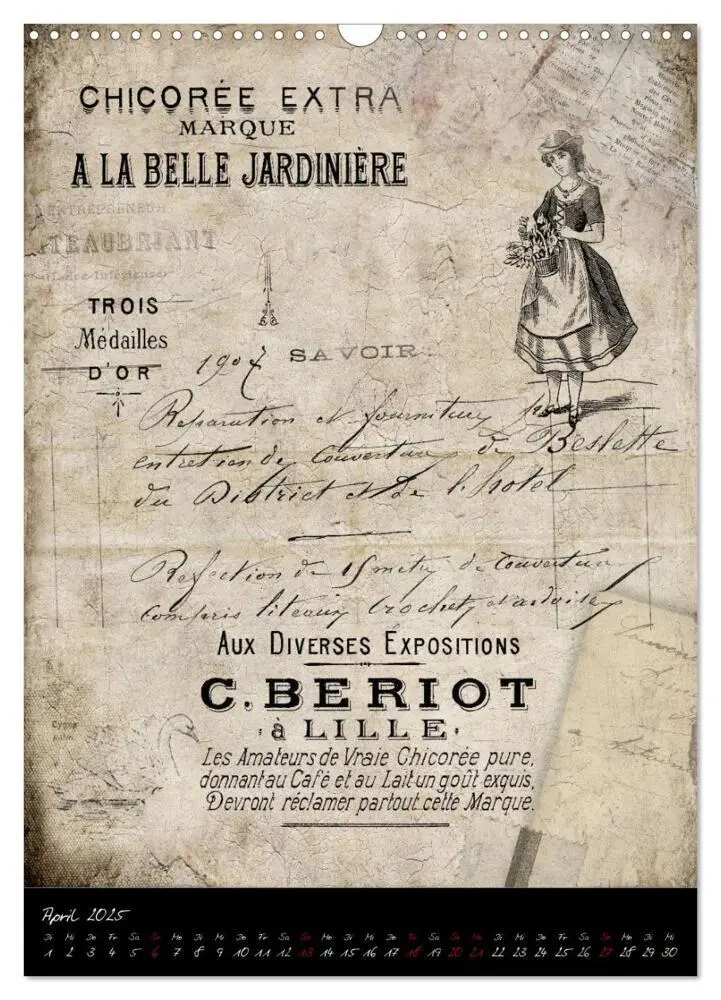 CHICORÉE EXTRA
MARQUE
A LA BELLE JARDINIÈRE
ENTREPRENEUR
TEAUBRIANT
TROIS
Médailles
D'OR
1907 SAVOIR
Reparation et fourniture pour
entretien de Couverture de Beslette
du District et de l'hotel
Refection de 15 metres de Couverture
compris liteaux Crochets et ardoises
AUX DIVERSES EXPOSITIONS
C. BERIOT
à LILLE
Les Amateurs de Vraie Chicorée pure,
donnant au Café et au Lait un goût exquis,
Devront réclamer partout cette Marque.
April 2025
Di Mi Do Fr Sa So Mo Di Mi Do Fr Sa So Mo Di Mi Do Fr Sa So Mo Di Mi Do Fr Sa So Mo Di Mi
1 2 3 4 5 6 7 8 9 10 11 12 13 14 15 16 17 18 19 20 21 22 23 24 25 26 27 28 29 30